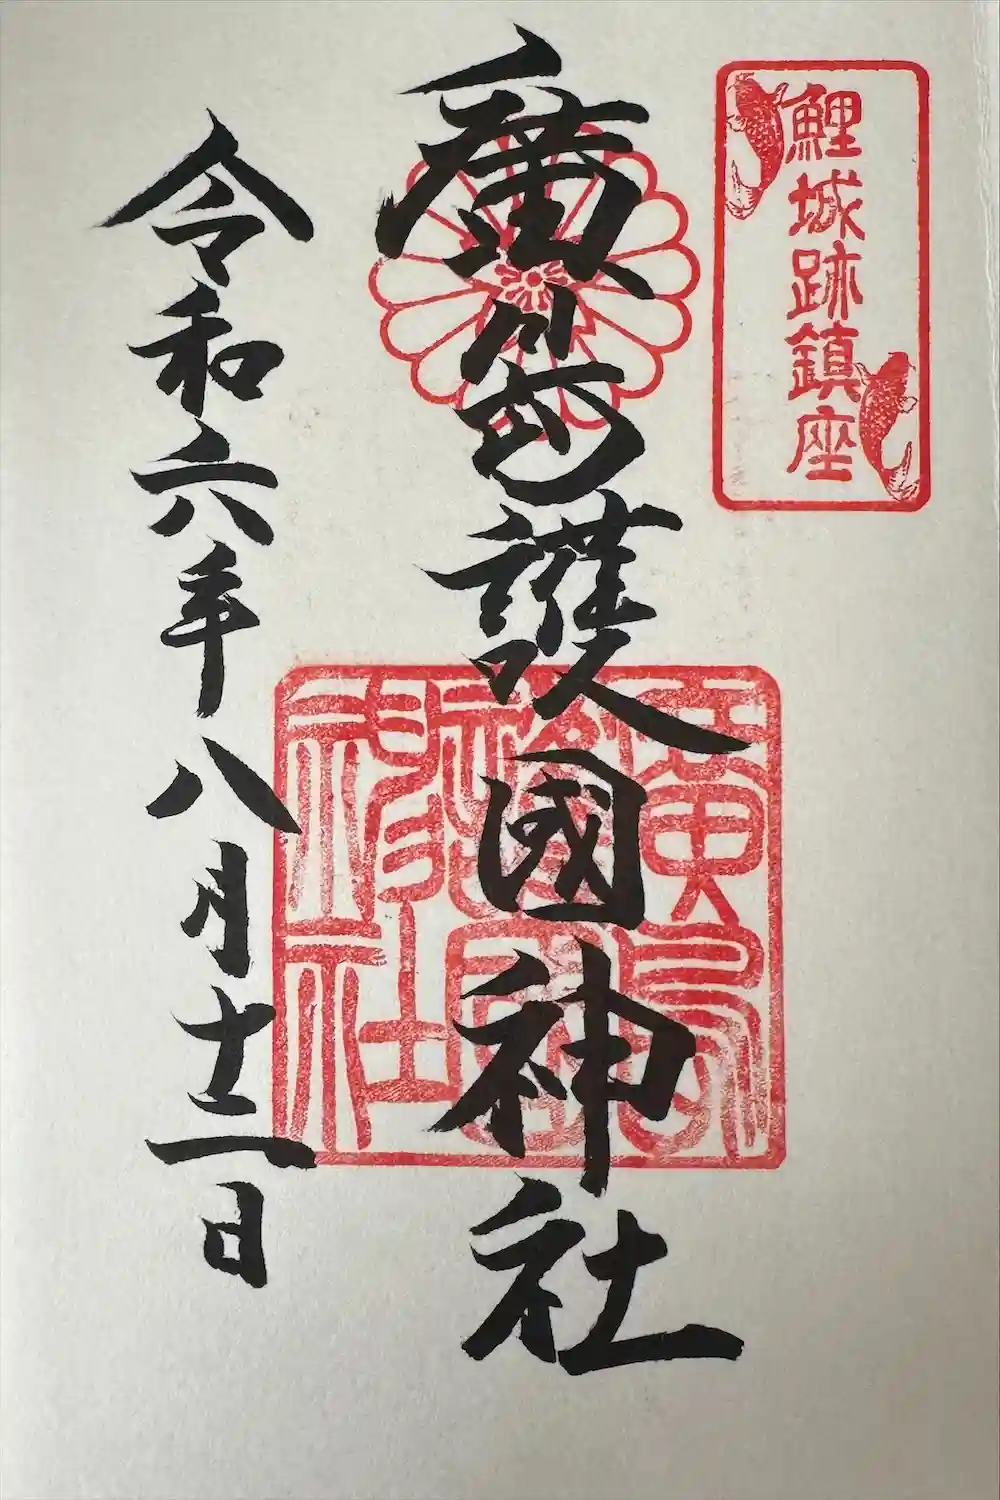 鯉城跡鎮座
廣島護國神社
令和六年八月十二日
廣島護國神社